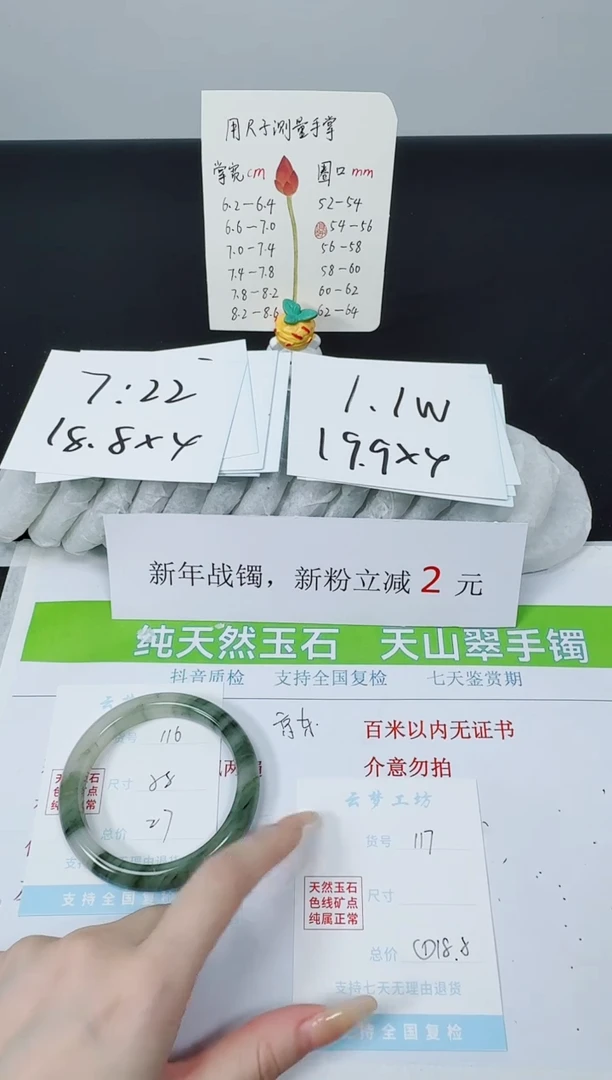 用尺子测量手掌
掌宽cm 圈口mm
6.2-6.4 52-54
6.6-7.0 54-56
7.0-7.4 56-58
7.4-7.8 58-60
7.8-8.2 60-62
8.2-8.6 62-64
7:22
18.8×4
1.1W
19.9×4
新年战镯，新粉立减2元
纯天然玉石 天山翠手镯
抖音质检 支持全国复检 七天鉴赏期
百米以内无证书
介意勿拍
云梦
货号 116
尺寸 58
总价 27
支持全国复检
云梦工坊
货号 117
天然玉石
色线矿点
纯属正常
尺寸
总价 ①18.8
支持七天无理由退货
支持全国复检